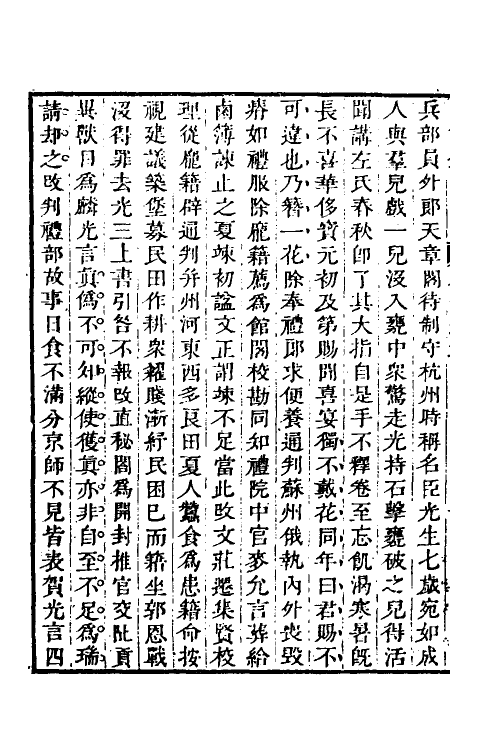 兵部員外郎天章閣待制守杭州時稱名臣光生七歲宛如成
人與羣兒戲一兒沒入甕中衆驚走光持石擊甕破之兒得活
聞講左氏春秋卽了其大指自是手不釋卷至忘飢渴寒暑旣
長不喜華侈寶元初及第賜聞喜宴獨不戴花同年曰君賜不
可違也乃簪一花除奉禮郞求便養通判蘇州俄執內外喪毀
瘠如禮服除龐籍薦爲館閣校勘同知禮院中官麥允言葬給
鹵簿諫止之夏竦初諡文正謂竦不足當此改文莊遷集賢校
理從龐籍辟通判幷州河東西多良田夏人蠶食爲患籍命按
視建議築堡募民田作耕衆糴賤漸紓民困已而籍坐郭恩戰
沒得罪去光三上書引咎不報改直秘閣爲開封推官交阯貢
異獸曰爲麟光言眞僞不可知縱使獲眞亦非自至不足爲瑞
請却之改判禮部故事日食不滿分京師不見皆表賀光言四